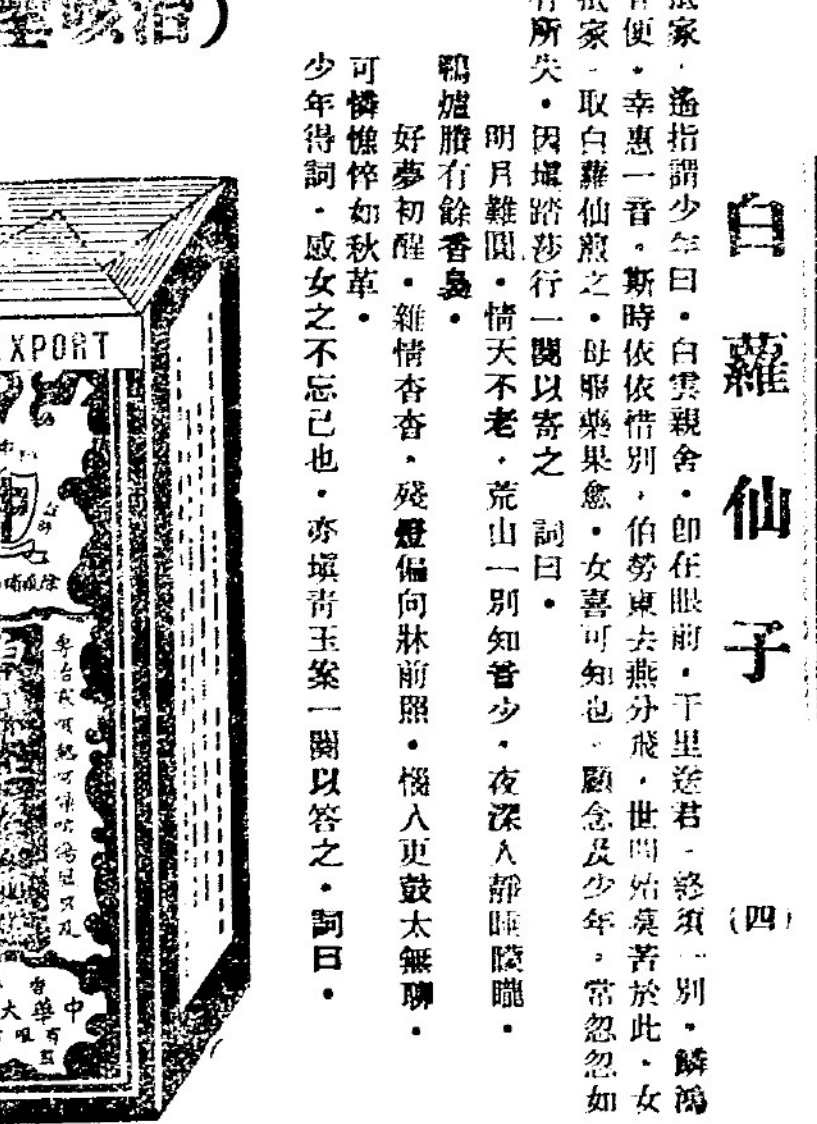 白蘿仙子 (四)
家．遙指謂少年曰．白雲親舍．卽在眼前．千里送君．終須一別．鱗鴻
便．幸惠一音。斯時依依惜別．伯勞東去燕分飛．世間始莫苦於此．女
家．取白蘿仙煎之．母服藥果愈．女喜可知也．顧念及少年．常忽忽如
所失．因塡踏莎行一闋以寄之 詞曰．
明月難圓．情天不老．荒山一別知音少．夜深人靜睡朦朧．
鴨爐賸有餘香裊．
好夢初醒．離情杳杳．殘燈偏向牀前照．惱人更鼓太無聊．
可憐憔悴如秋草．
少年得詞．感女之不忘己也．亦塡靑玉案一闋以答之．詞曰．
XPORT